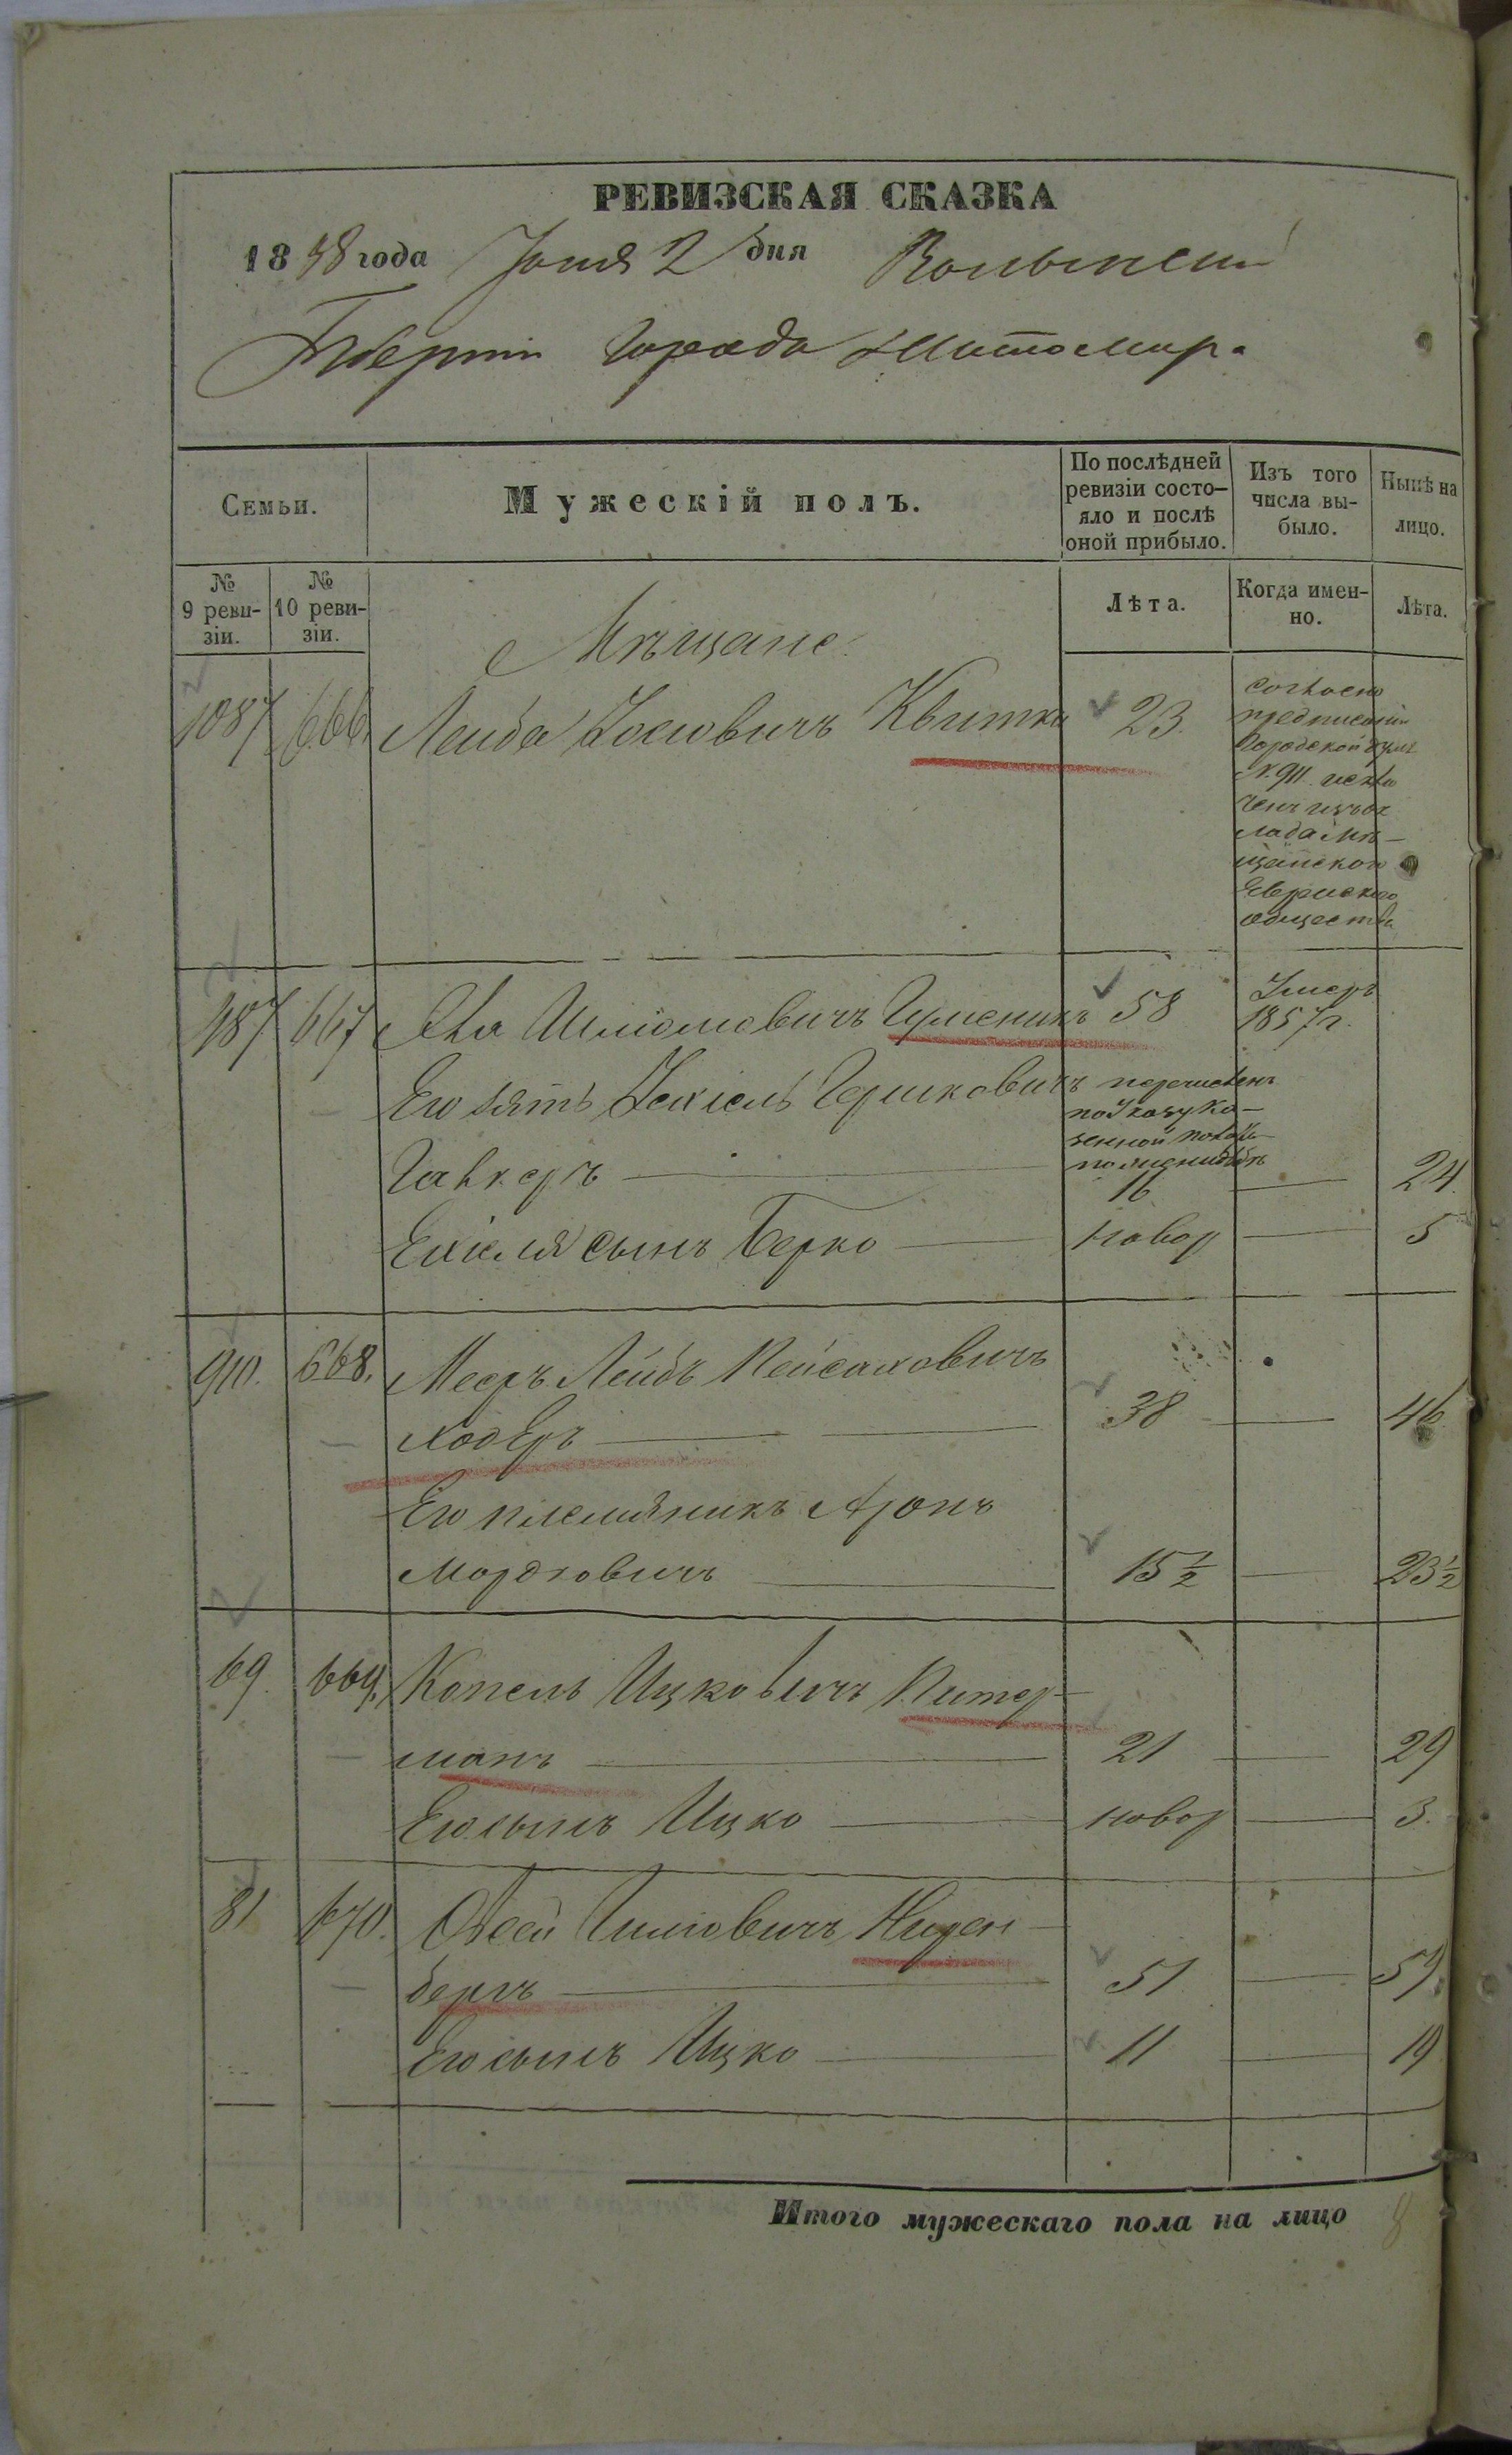 РЕВИЗСКАЯ СКАЗКА
1858 года Іюня 2 дня Волынской
Губерніи города Житомира
Семьи.
Мужескій полъ.
По послѣдней ревизіи состо-
яло и послѣ
оной прибыло.
Изъ того
числа вы-
было.
Нынѣ на
лицо.
№
9 реви-
зіи.
№
10 реви-
зіи.
Лѣта.
Когда имен-
но.
Лѣта.
Мѣщане
1087 666. Лейба Іосіовичъ Квитка 23.
согласно
предписанію
Городской Думы
№ 911 исклю
ченъ изъ ок
лада мѣ-
щанскаго
Еврейскаго
общества
487 667 Шліомовичъ Гуменикъ 58 Умеръ
1857 г.
Его зять Іехіель Гершковичъ перечисленъ
по Указу Ка-
зенной Пала-
ты
16 24
Ехіеля сынъ Берко новор 5
910. 668. Мееръ Лейбъ Пейсаховичъ
Ходеръ 38 46
Его племянникъ Аронъ
Мордковичъ 15 1/2 23 1/2
69. 669. Копель Ицковичъ Питер-
манъ 21 29
Его сынъ Ицко новор 3.
81 670. Овсей Нирен-
бергъ 51 59
Его сынъ Ицко 11 19
Итого мужескаго пола на лицо 8